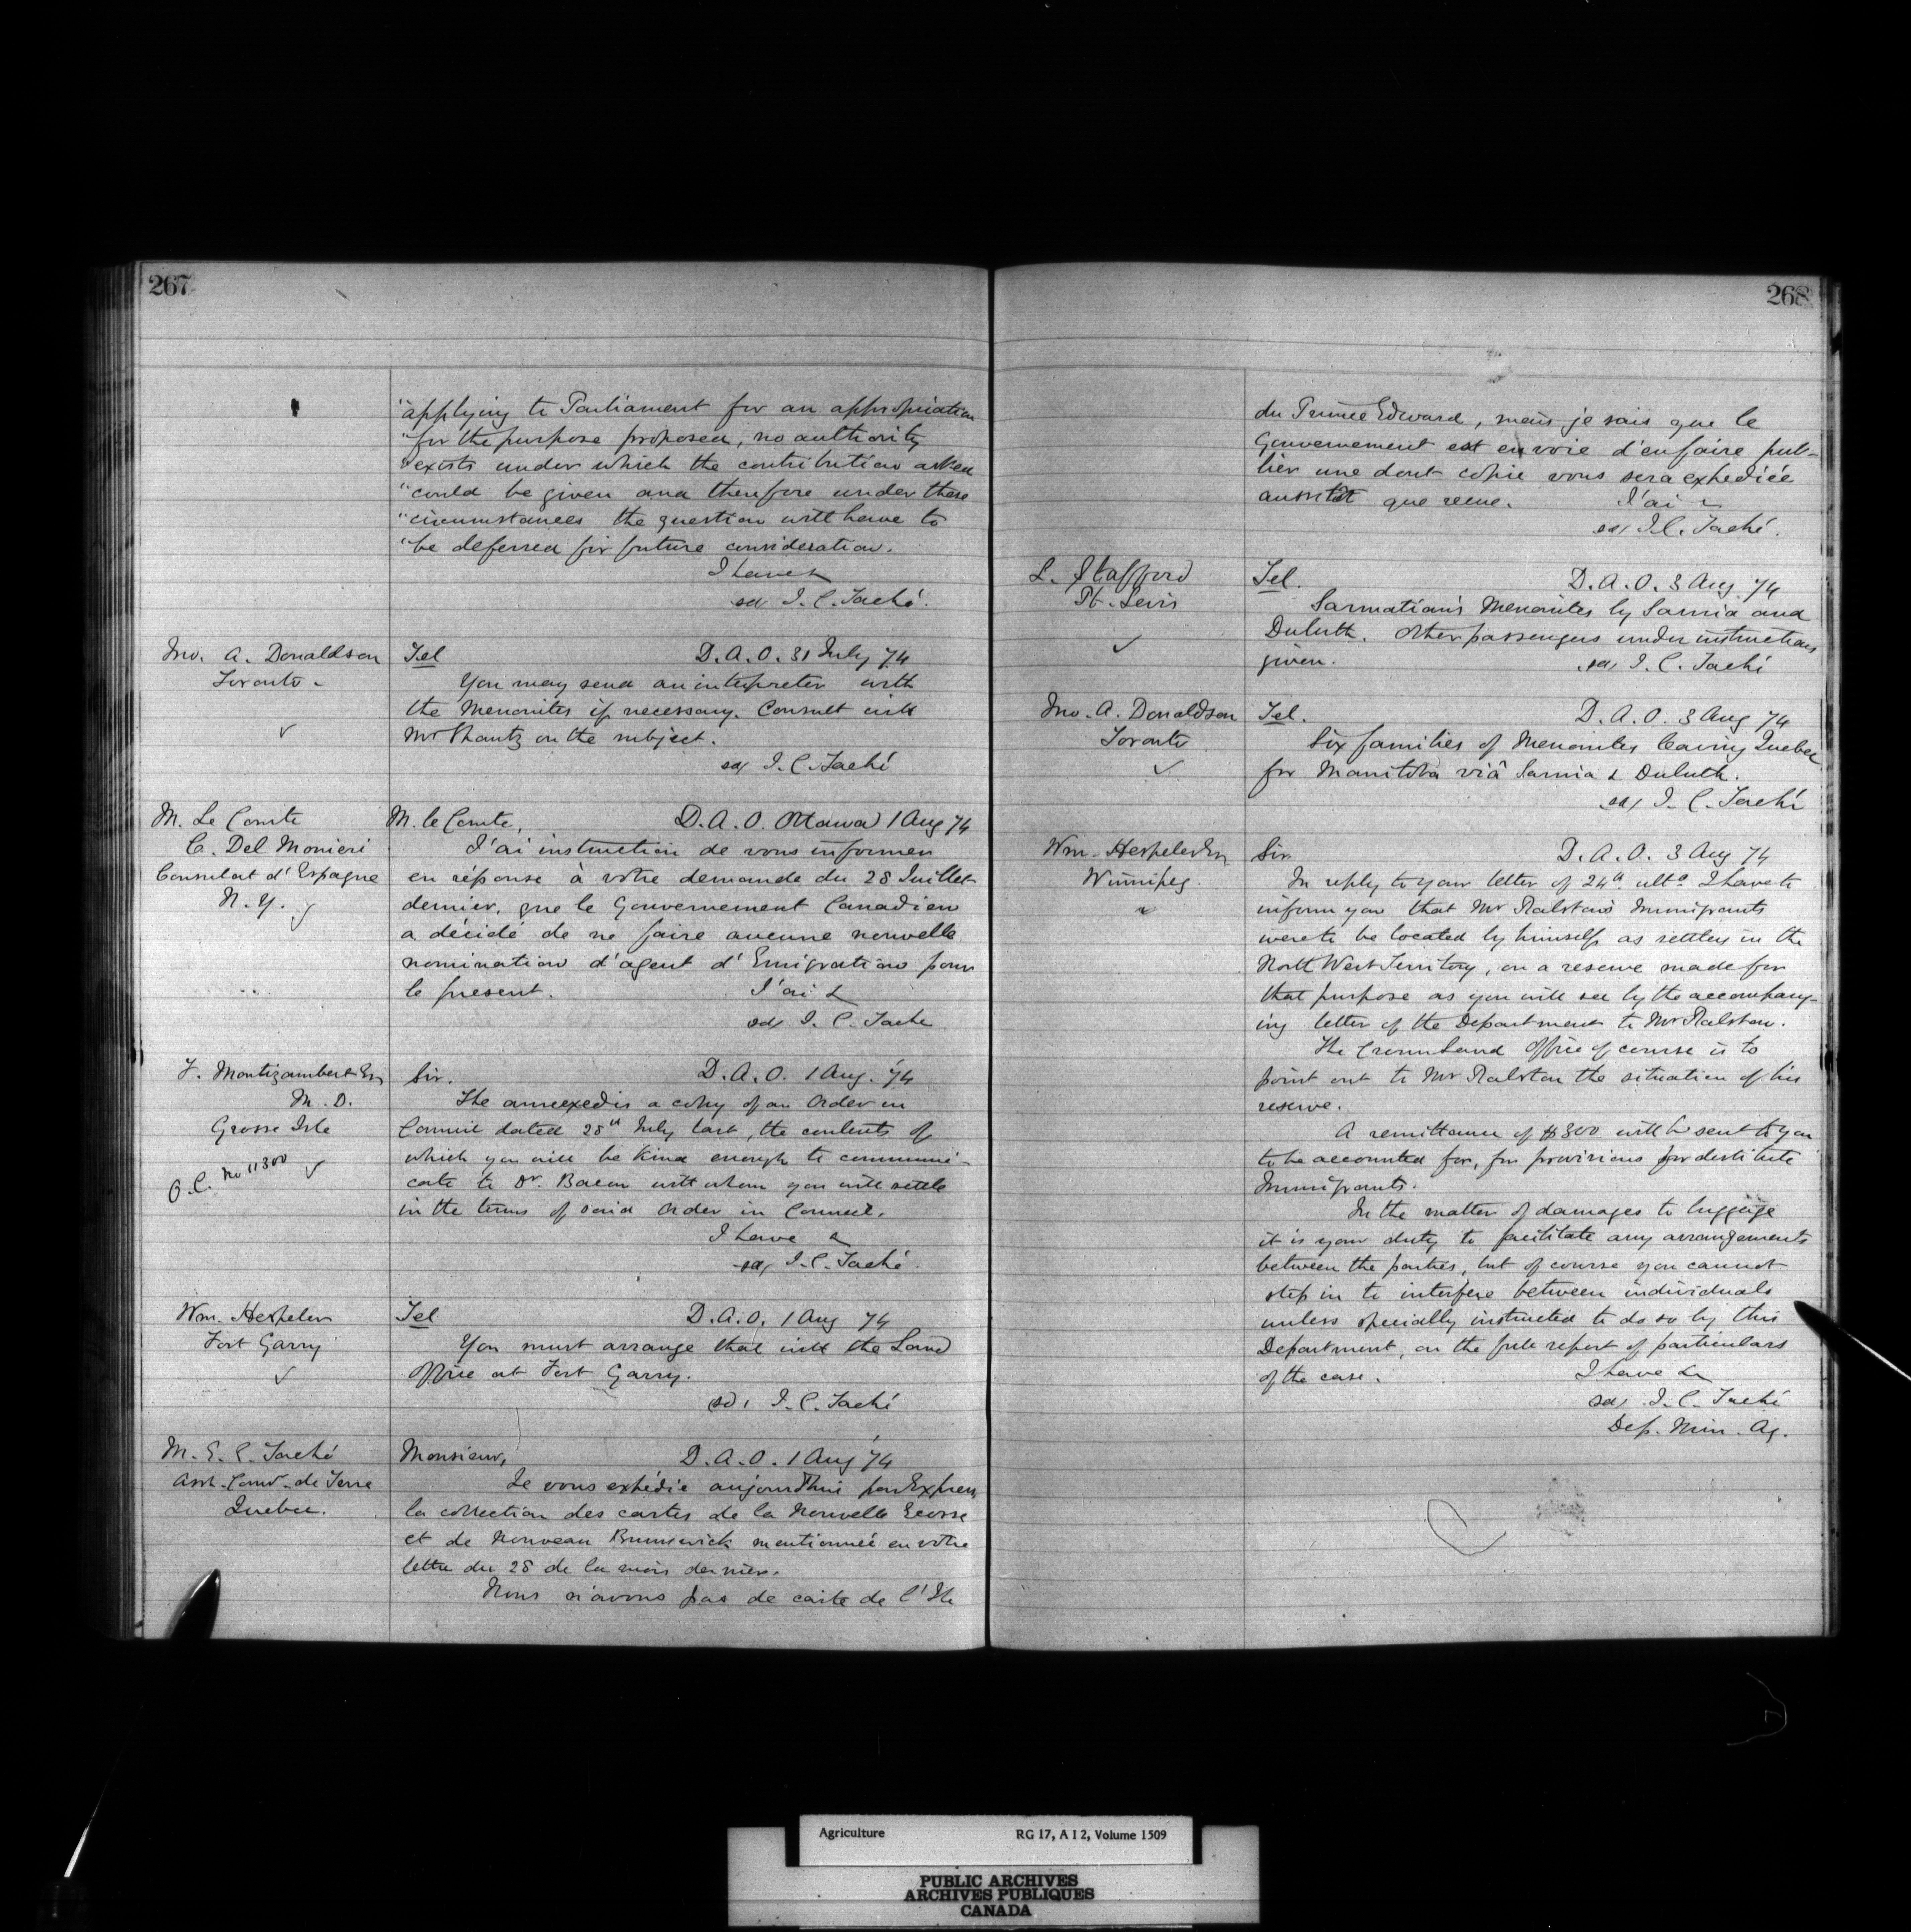 267
"applying to Parliament for an appropriation
"for the purpose proposed, no authority
"exists under which the contribution asked
"could be given and therefore under these
"circumstances the question will have to
"be deferred for future consideration.
I have &
sd/ J. C. Taché.
Jno. A. Donaldson
Toronto -
Tel D. A. O. 31 July 74
You may send an interpreter with
the Menonites if necessary. Consult with
Mr Shantz on the subject.
sd/ J. C. Taché
M. Le Comte
C. Del Monieri
Consulat d'Espagne
N. Y.
M. le Comte, D. A. O. Ottawa 1 Aug 74
J'ai instruction de vous informer
en réponse à votre demande du 28 Juillet
dernier, que le Gouvernement Canadien
a décidé de ne faire aucune nouvelle
nomination d'agent d'Emigration pour
le present. J'ai &
sd/ J. C. Tache
F. Montizambert Esq
M. D.
Grosse Isle
O. C. No 11300
Sir. D. A. O. 1 Aug. 74
The annexed is a copy of an Order in
Council dated 28th July last, the contents of
which you will be kind enough to communi-
cate to Dr. Bacon with whom you will settle
in the terms of said Order in Council.
I have &
sd/ J. C. Taché.
Wm. Hespeler
Fort Garry
Tel D. A. O. 1 Aug 74
You must arrange that with the Land
Office at Fort Garry.
sd/ J. C. Taché
M. E. C. Taché
Asst. Comr. de Terre
Quebec.
Monsieur, D. A. O. 1 Aug 74
Je vous expédie aujourd'hui par Express
la collection des cartes de la Nouvelle Ecosse
et de Nouveau Brunswick mentionnée en votre
lettre du 28 de la mois dernier.
Nous n'avons pas de carte de l'Ile
268
du Prince Edward, mais je sais que le
Gouvernement est en voie d'en faire pub-
lier une dont copie vous sera expediée
aussitôt que reçue. J'ai &
sd/ J. C. Taché.
L. Stafford
Pt. Levis
Tel. D. A. O. 3 Aug. 74
Sarmatian's Menonites by Sarnia and
Duluth. Other passengers under instructions
given. sd/ J. C. Taché
Jno. A. Donaldson
Toronto
Tel. D. A. O. 3 Aug 74
Six families of Menonites leaving Quebec
for Manitoba viâ Sarnia & Duluth.
sd/ J. C. Taché
Wm. Hespeler Esq
Winnipeg.
Sir D. A. O. 3 Aug 74
In reply to your letter of 24th ulto I have to
inform you that Mr Ralston's Immigrants
were to be located by himself as settlers in the
North West Territory, on a reserve made for
that purpose as you will see by the accompany-
ing letter of the Department to Mr Ralston.
The Crown Land Office of course is to
point out to Mr Ralston the situation of his
reserve.
A remittance of $300 will be sent to you
to be accounted for, for provisions for destitute
Immigrants.
In the matter of damages to luggage
it is your duty to facilitate any arrangements
between the parties, but of course you cannot
step in to interfere between individuals
unless specially instructed to do so by this
Department, on the full report of particulars
of the case. I have &
sd/ J. C. Taché
Dep. Min. Ag.
Agriculture RG 17, A I 2, Volume 1509
PUBLIC ARCHIVES
ARCHIVES PUBLIQUES
CANADA